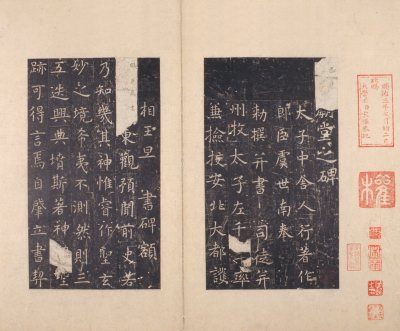 廟堂之碑
太子中舍人行著作
郎臣虞世南奉
勑撰并書 司徒并
州牧太子左千 率
兼檢挍安北大都護
相王旦 書碑額
東觀預聞前史若
乃知幾其神惟睿作聖玄
妙之境希夷不測然則三
五迭興典墳斯著神 聖
跡可得言焉自肇立書契